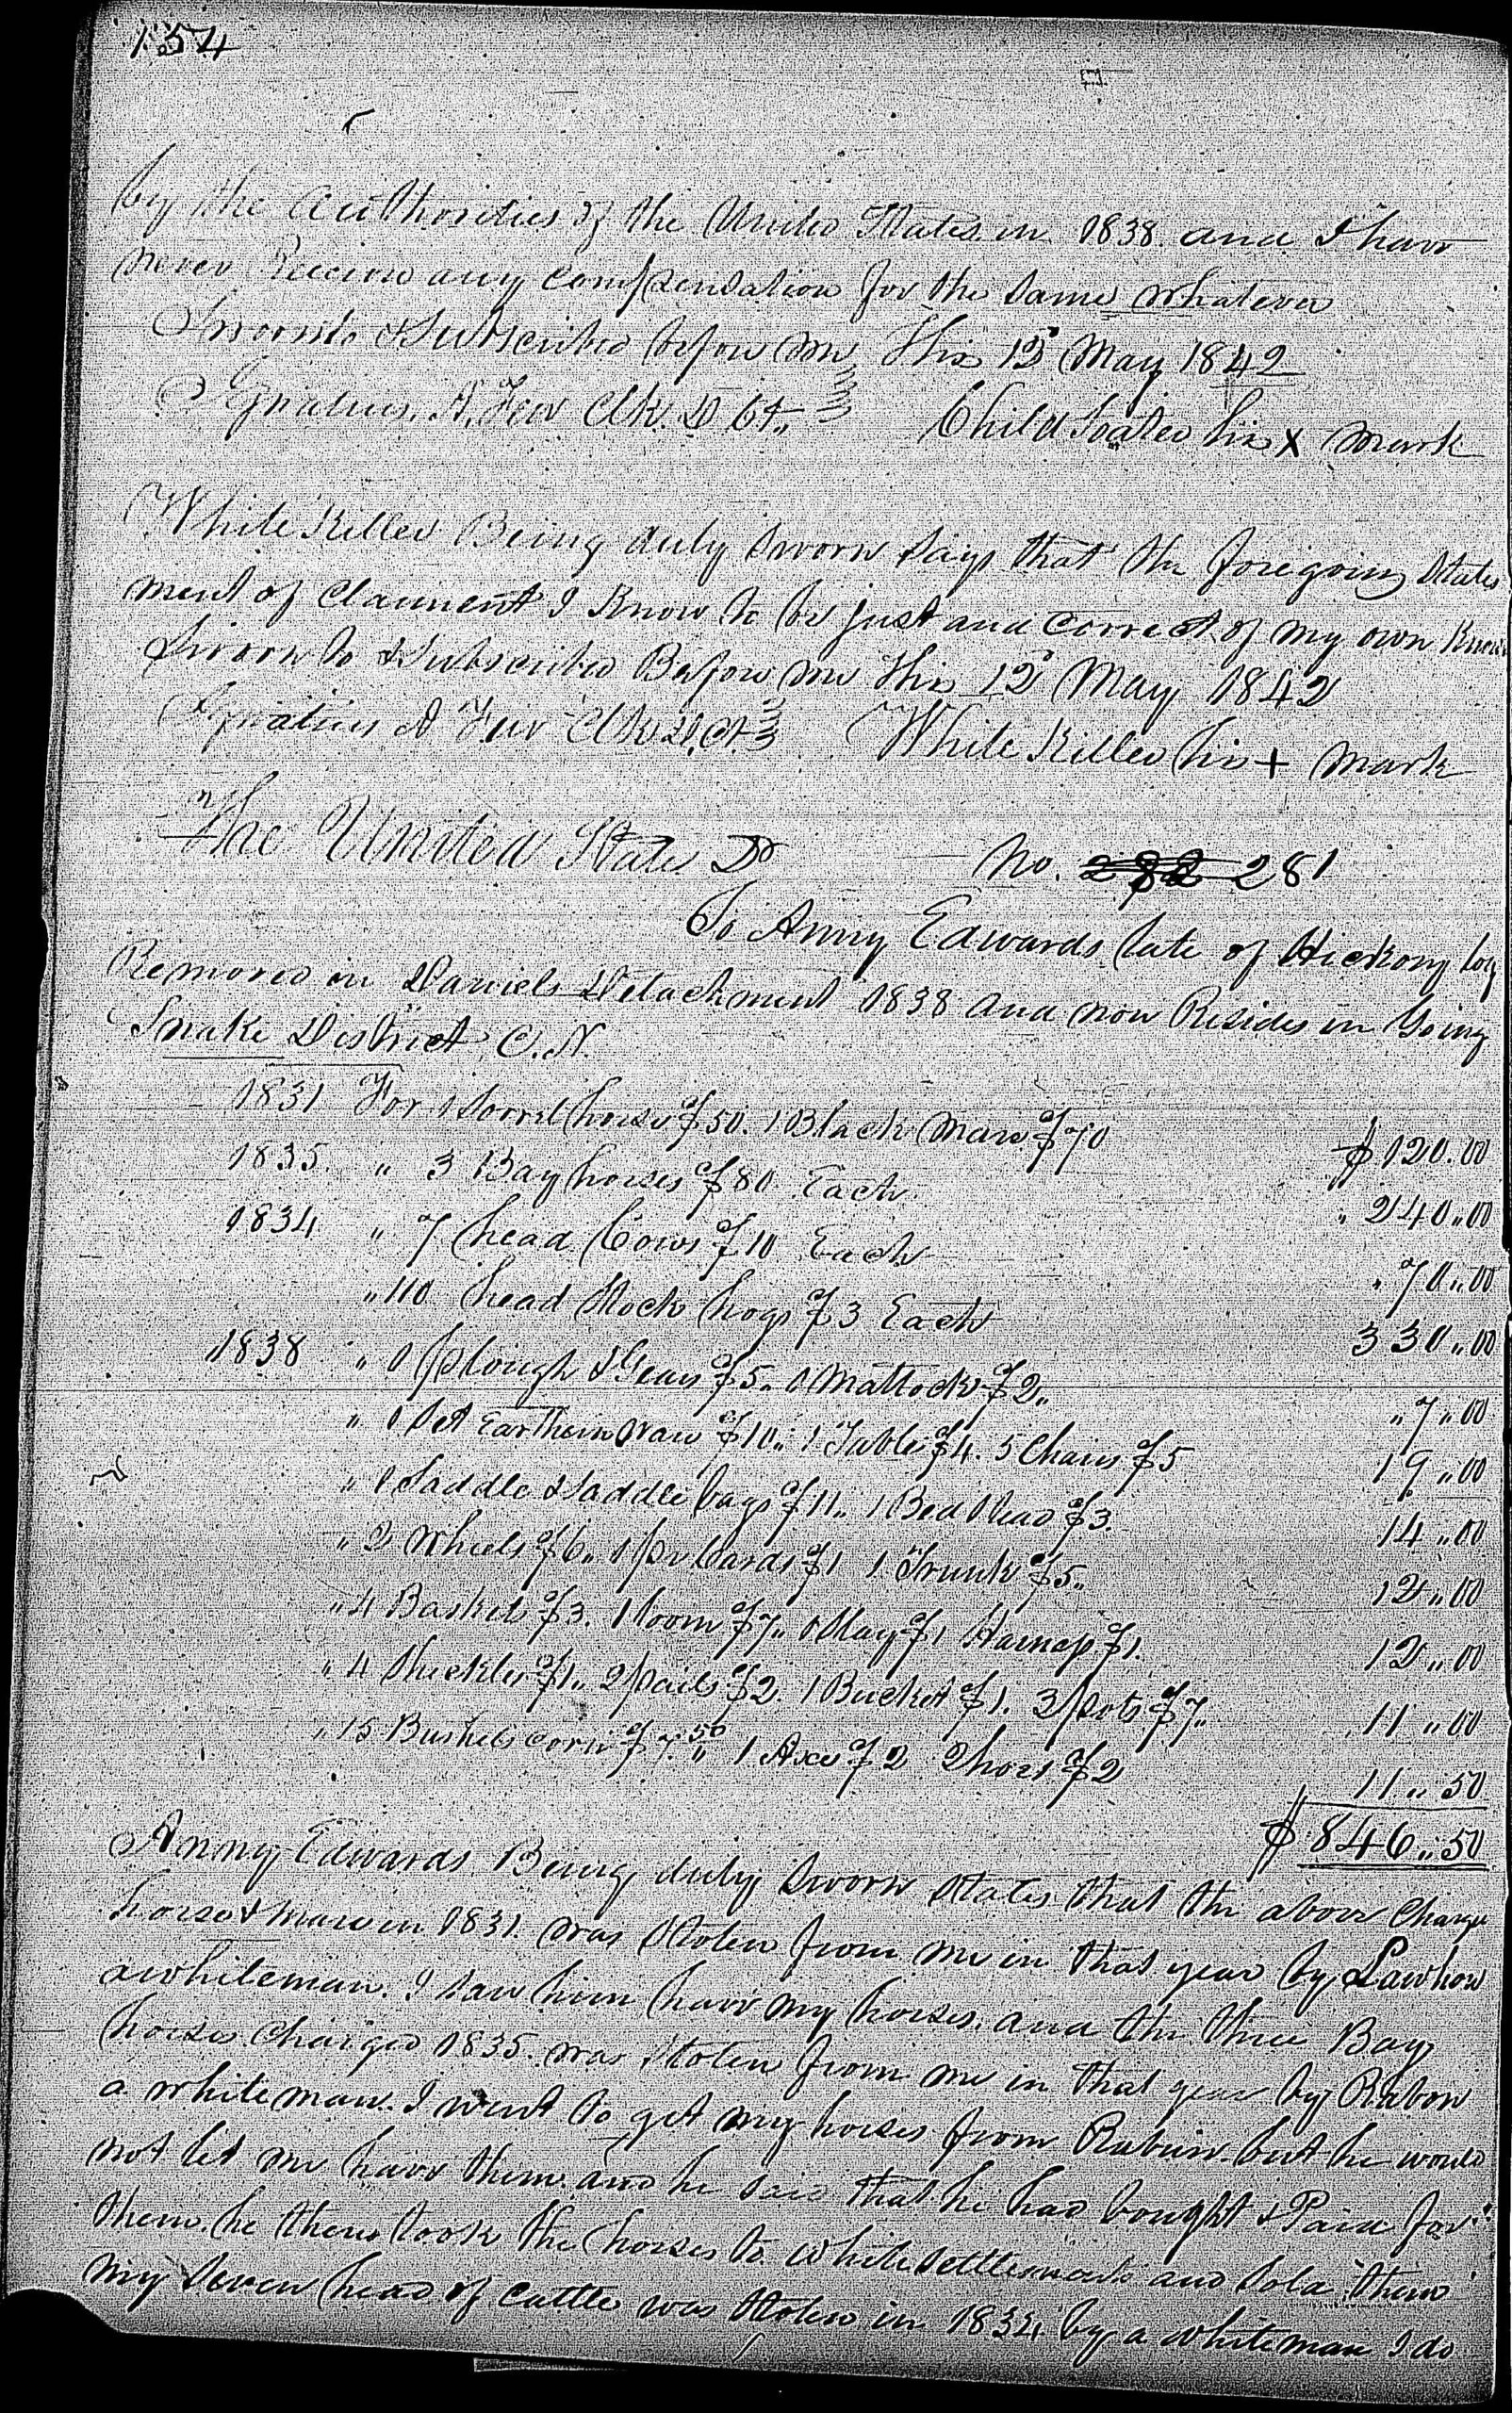 154
by the authorities of the United States in 1838 and I have
never Receive any compensation for the same whatever
Sworn to & Subscribed before me This 13 May 1842
Ignatius A. Few Clk. D Ct. Child Toater his X mark
White Killer Being duly sworn says that the foregoing State
ment of claiment I Know to be just and correct of my own Know
Sworn to & Subscribed Before me this 12 May 1842
Ignatius A Few Clk D. Ct. White Killer his + mark
The United States Dr No. 282 281
To Anny Edwards late of Hickory log
Removed in Daniels Detachment 1838 and now Resides in Going
Snake District C.N.
1831 For 1 Sorrel horse $50. 1 Black Mare $70 $120.00
1835. " 3 Bay horses $80 Each " 240"00
1834 " 7 head Cows $10 Each " 70"00
" 110 head Stock hogs $3 Each 330"00
1838 " 1 plough & Gears $5" 1 Mattock $2" " 7"00
" 1 Set Earthern ware $10" 1 Table $4. 5 Chairs $5 19"00
" 1 Saddle & Saddle bags $11" 1 Bed Stead $3. 14"00
" 2 Wheels $6" 1 pr Cards $1 1 Trunk $5" 12"00
" 4 Baskets $3. 1 loom $7" 1 Slay $1 Harness $1. 12"00
" 4 Sheckles $1" 2 pails $2. 1 Bucket $1. 3 pots $7" 11"00
" 15 Bushels corn $7.50" 1 Axe $2 2 hoes $2 11"50
$846"50
Anny Edwards Being duly Sworn States that the above Charge
horse & mare in 1831. was Stolen from me in that year by Lawhon
a whiteman. I saw him have my horses. and the three Bay
horses Charged 1835. was Stolen from me in that year by Rabon
a white man. I went to get my horses from Rabun but he would
not let me have them and he said that he had bought & Paid for
them. he then took the horses to white settlements and sold them
my seven head of cattle was stolen in 1834 by a whiteman I do